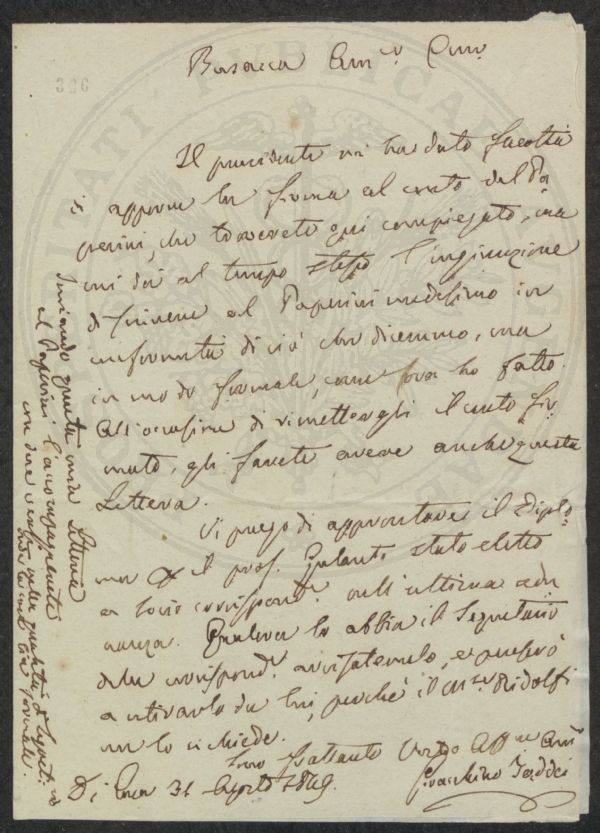 Busacca Am.º Car.º
326
Il presidente mi ha dato facoltà
di apporre la firma al conto del Pa-
perini, che troverete qui compiegato, ma
mi dà al tempo stesso l'ingiunzione
di scrivere al Paperini medesimo in
conformità di ciò che dicemmo, ma
in modo formale, come ora ho fatto.
All'occasione di rimettergli il conto fir-
mato, gli farete avere anche questa
Lettera.
Vi prego di approntare il Diplo-
ma il prof. Galanti stato eletto
a socio corrispond.e nell'ultima adu-
nanza. Qualora lo abbia il Segretario
delle corrispond.e avvisatemelo, e penserò
a ritirarlo da lui, perché il M.se Ridolfi
me lo richiede.
Sono frattanto Vostro Aff.mo Am.
Di Casa 31 Agosto 1849.
Gioacchino Taddei
Inviando questa mia Lettera
al Paperini l'accompagnerete
con due versi nella qualità di Segret.